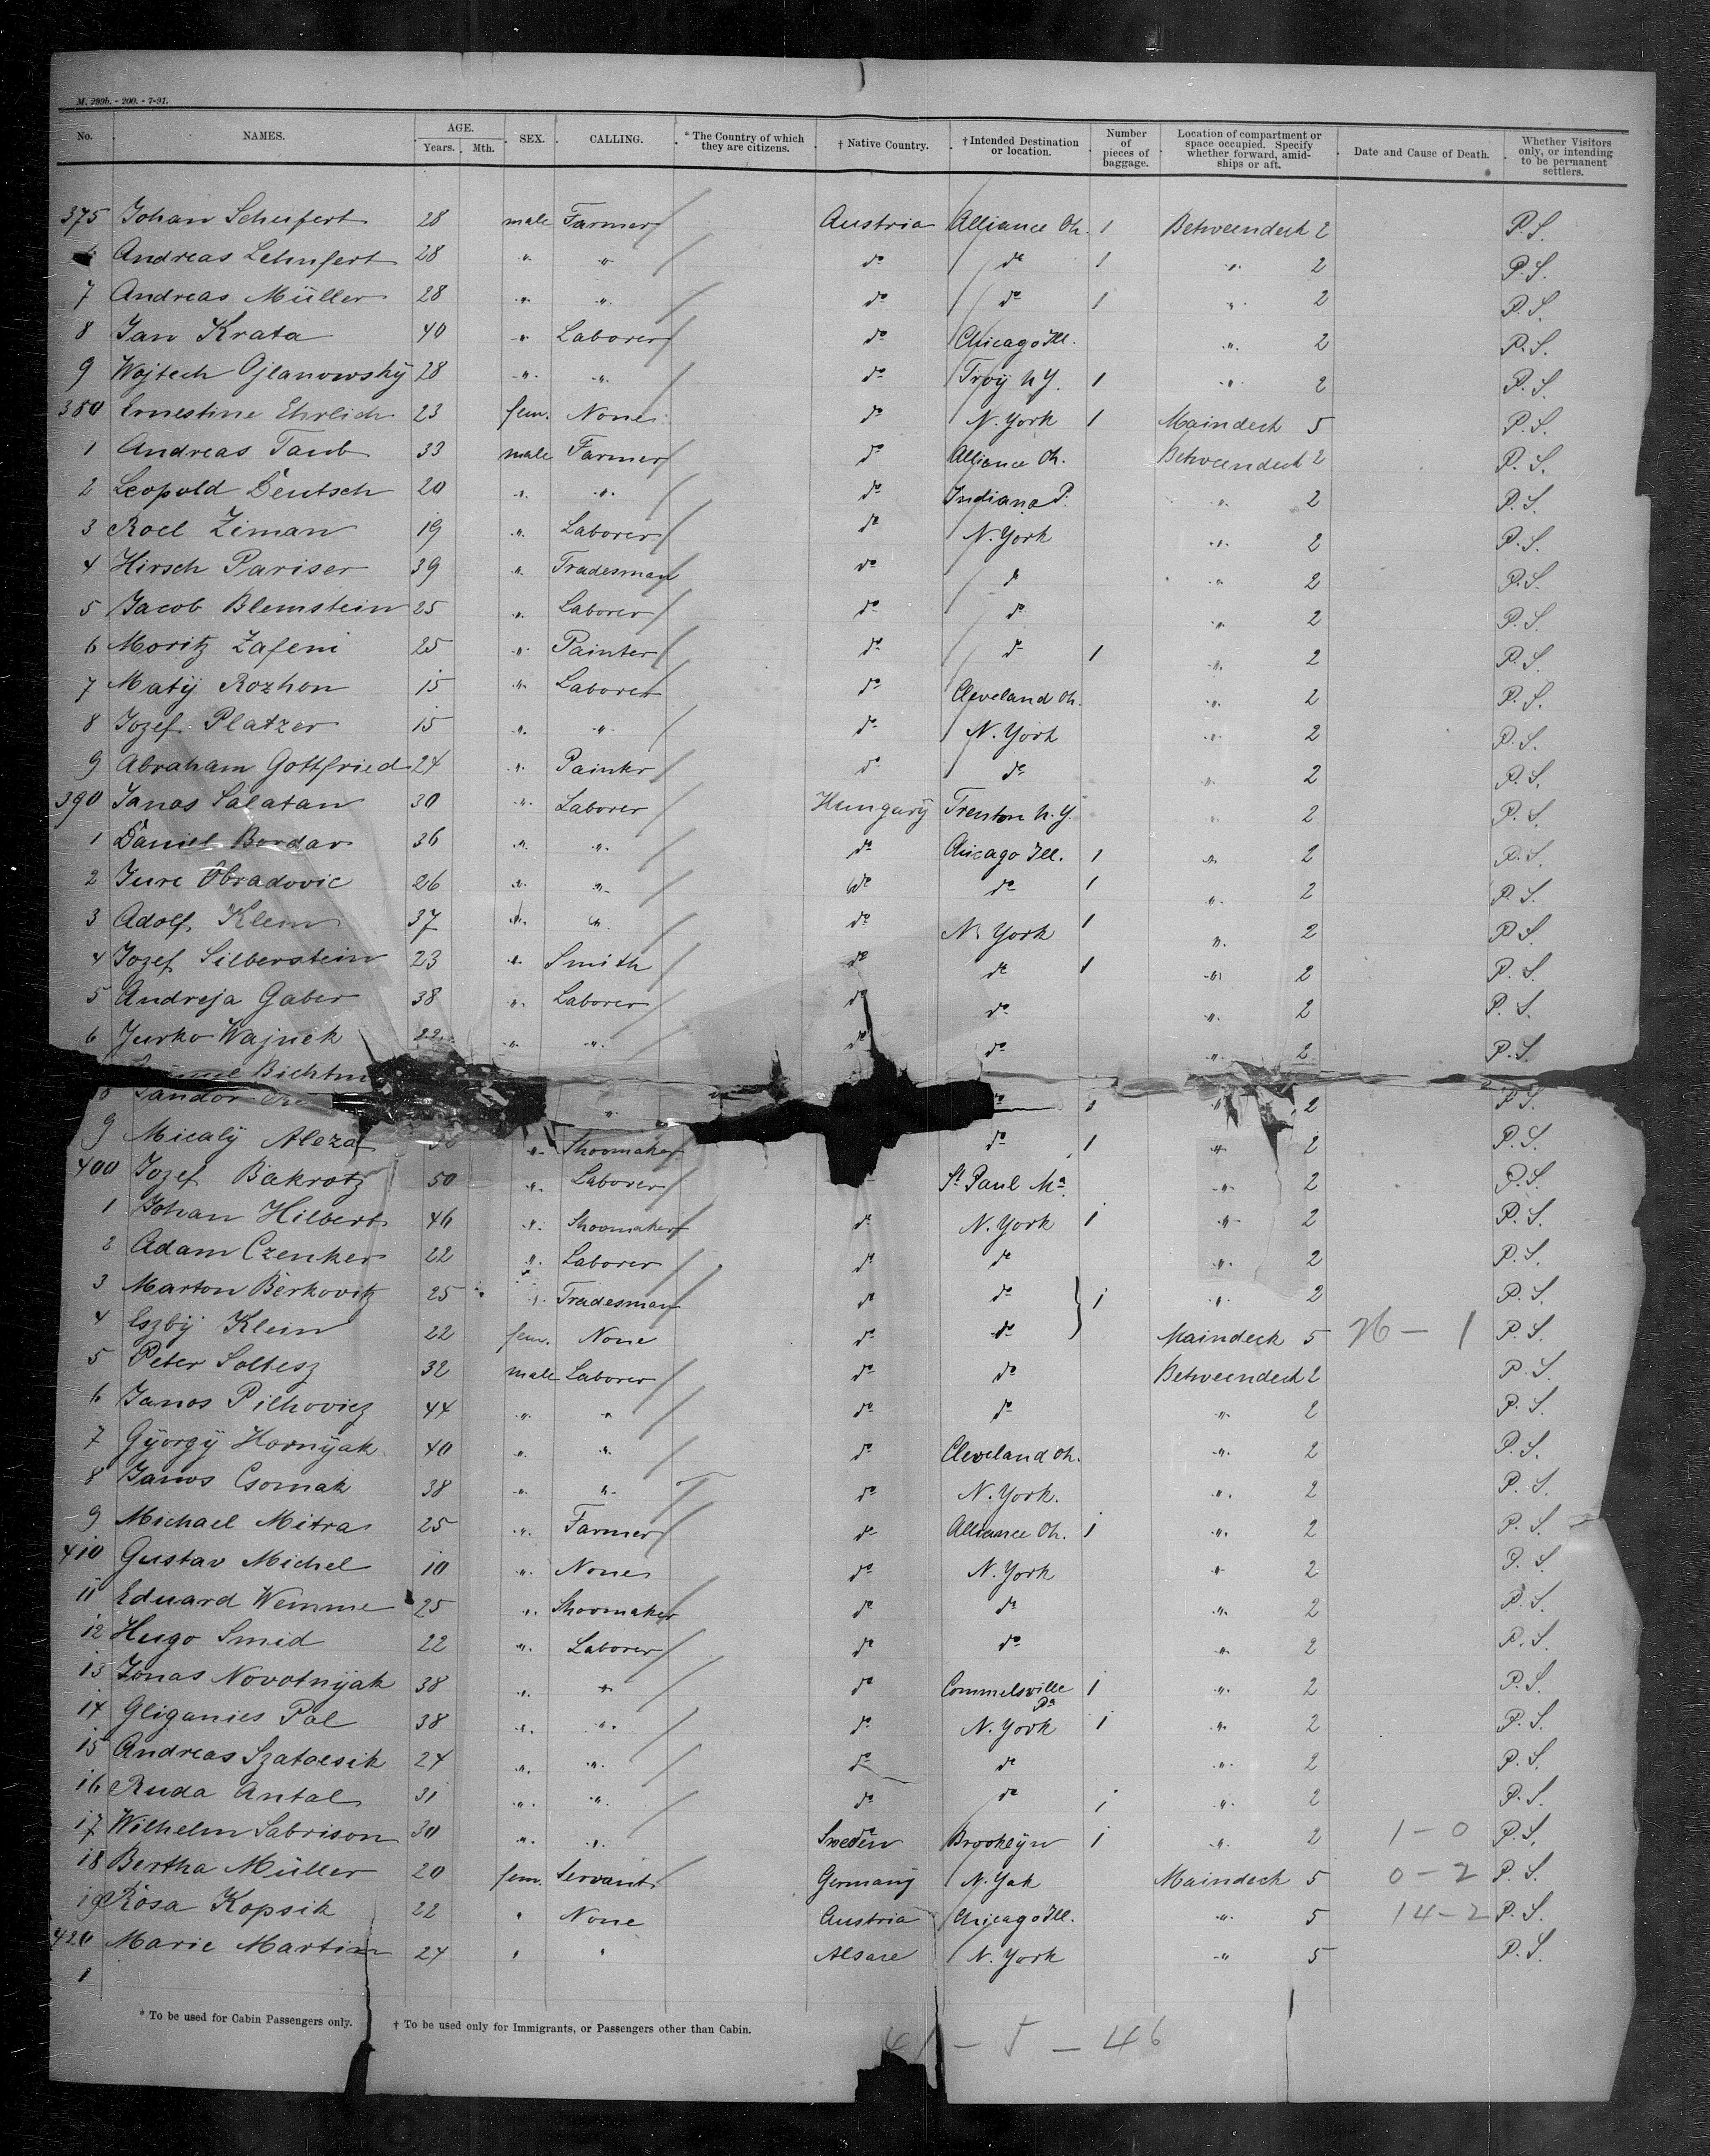 M. 299b. - 200. - 7-91.
No. NAMES. AGE. Years. Mth. SEX. CALLING. * The Country of which they are citizens. † Native Country. † Intended Destination or location. Number of pieces of baggage. Location of compartment or space occupied. Specify whether forward, amidships or aft. Date and Cause of Death. Whether Visitors only, or intending to be permanent settlers.
375 Johan Scheifert 28 male Farmer Austria Alliance Oh. 1 Betweendeck 2 P.S.
Andreas Lehnfert 28 " " do do 1 " 2 P.S.
7 Andreas Müller 28 " " do do 1 " 2 P.S.
8 Jan Krata 40 " Laborer do Chicago Ill. " 2 P.S.
9 Wojtech Ojlanowskÿ 28 " " do Troÿ N.Y. 1 " 2 P.S.
380 Ernestine Ehrlich 23 fem. None do N. York 1 Maindeck 5 P.S.
1 Andreas Taub 33 male Farmer do Alliance Oh. Betweendeck 2 P.S.
2 Leopold Deutsch 20 " " do Indiana P. " 2 P.S.
3 Roel Ziman 19 " Laborer do N. York " 2 P.S.
4 Hirsch Pariser 39 " Tradesman do do " 2 P.S.
5 Jacob Blemstein 25 " Laborer do do " 2 P.S.
6 Moritz Zafeni 25 " Painter do do 1 " 2 P.S.
7 Matÿ Rozhon 15 " Laborer do Cleveland Oh. " 2 P.S.
8 Jozef Platzer 15 " " do N. York " 2 P.S.
9 Abraham Gottfried 24 " Painter do do " 2 P.S.
390 Janos Salatan 30 " Laborer Hungarÿ Trenton N.Y. " 2 P.S.
1 Daniel Bordar 36 " " do Chicago Ill. 1 " 2 P.S.
2 Jure Obradovic 26 " " do do 1 " 2 P.S.
3 Adolf Klein 37 " " do N. York 1 " 2 P.S.
4 Jozef Silberstein 23 " Smith do do 1 " 2 P.S.
5 Andreja Gaber 38 " Laborer do do " 2 P.S.
6 Jurko Wajnek 22 " " do do " 2 P.S.
8 Sandor " do 1 " 2 P.S.
9 Micalÿ Aleza " Shoomaker do 1 " 2 P.S.
400 Jozef Bakrotz 50 " Laborer St. Paul Ma. " 2 P.S.
1 Johan Hilbert 46 " Shoomaker do N. York 1 " 2 P.S.
2 Adam Czenker 22 " Laborer do do " 2 P.S.
3 Marton Berkovitz 25 " Tradesman do do 1 " 2 P.S.
4 Eszbÿ Klein 22 fem. None do do Maindeck 5 26 — 1 P.S.
5 Peter Soltesz 32 male Laborer do do Betweendeck 2 P.S.
6 Janos Pilhovicz 44 " " do do " 2 P.S.
7 Gÿorgÿ Hornÿak 40 " " do Cleveland Oh. " 2 P.S.
8 Janos Csomak 38 " " do N. York. " 2 P.S.
9 Michael Mitra 25 " Farmer do Alliance Oh. 1 " 2 P.S.
410 Gustav Michel 10 " None do N. York " 2 P.S.
11 Eduard Wemme 25 " Shoomaker do do " 2 P.S.
12 Hugo Smid 22 " Laborer do do " 2 P.S.
13 Jonas Novotnÿak 38 " " do Commelsville Pa 1 " 2 P.S.
14 Gliganics Pal 38 " " do N. York 1 " 2 P.S.
15 Andreas Szatalsik 24 " " do do " 2 P.S.
16 Ruda Antal 31 " " do do 1 " 2 P.S.
17 Wilhelm Sabrison 30 " " Sweden Brooklÿn 1 " 2 1 - 0 P.S.
18 Bertha Müller 20 fem. Servant Germanÿ N. Yok Maindeck 5 0 - 2 P.S.
19 Rosa Kopsik 22 " None Austria Chicago Ill. " 5 14 - 2 P.S.
420 Marie Martin 24 " " Alsare N. York " 5 P.S.
1
* To be used for Cabin Passengers only. † To be used only for Immigrants, or Passengers other than Cabin.
— 5 — 46